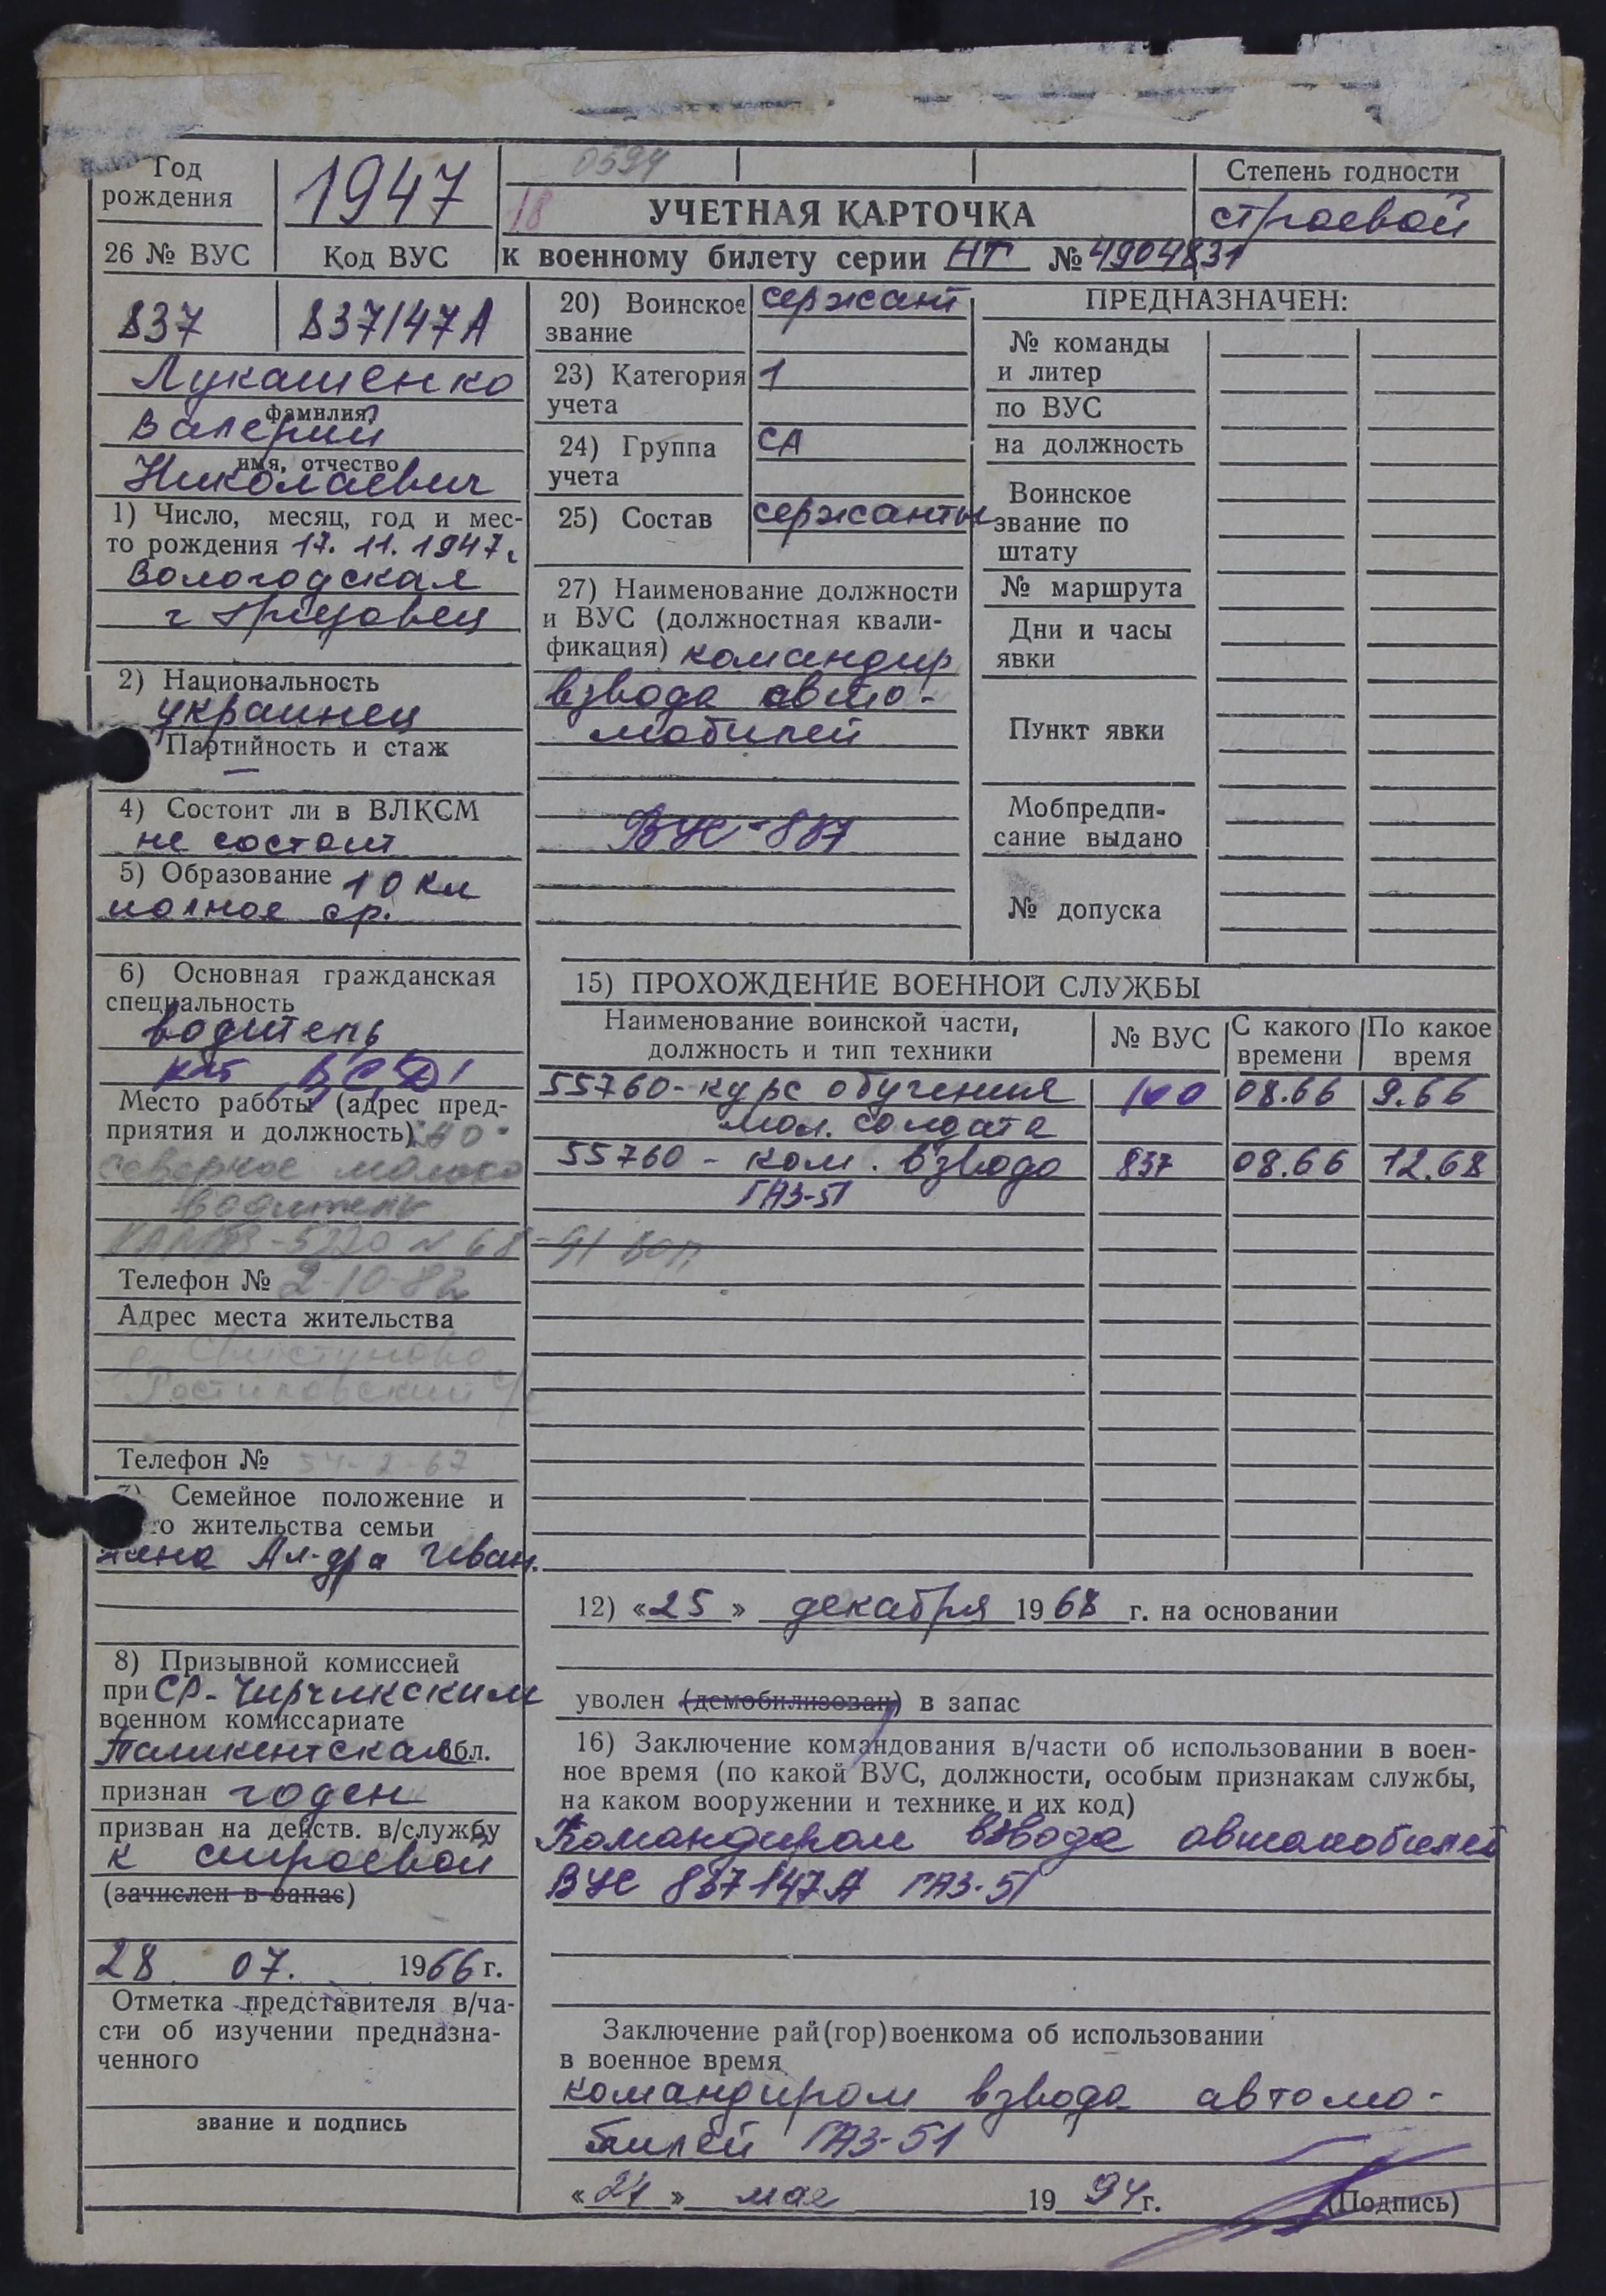 Год
рождения
1947
0594
18
УЧЕТНАЯ КАРТОЧКА
Степень годности
строевой
26 № ВУС
Код ВУС
к военному билету серии НТ № 4904831
837
837147А
Лукашенко
фамилия
Валерий
имя, отчество
Николаевич
1) Число, месяц, год и мес-
то рождения 17.11.1947г.
Вологодская
г Грязовец
2) Национальность
украинец
Партийность и стаж
—
4) Состоит ли в ВЛКСМ
не состоит
5) Образование 10 кл
полное ср.
6) Основная гражданская
специальность
водитель
кат В,С,Д1
Место работы (адрес пред-
приятия и должность) АО
Северное молоко
водитель
КАМАЗ-5320 № 68-91 ВОП
Телефон № 2-10-82
Адрес места жительства
Свистуново
Ростиловский с/с
Телефон № 34-2-67
7) Семейное положение и
то жительства семьи
жена Ал-дра Иван.
8) Призывной комиссией
при Ср-Чирчикским
военном комиссариате
Ташкентская обл.
признан годен
призван на действ. в/службу
к строевой
(зачислен в запас)
28 07. 1966 г.
Отметка представителя в/ча-
сти об изучении предназна-
ченного
звание и подпись
20) Воинское
звание
сержант
23) Категория
учета
1
24) Группа
учета
СА
25) Состав
сержанты
27) Наименование должности
и ВУС (должностная квали-
фикация) командир
взвода авто-
мобилей
ВУС-837
ПРЕДНАЗНАЧЕН:
№ команды
и литер
по ВУС
на должность
Воинское
звание по
штату
№ маршрута
Дни и часы
явки
Пункт явки
Мобпредпи-
сание выдано
№ допуска
15) ПРОХОЖДЕНИЕ ВОЕННОЙ СЛУЖБЫ
Наименование воинской части,
должность и тип техники
№ ВУС
С какого
времени
По какое
время
55760-курс обучения 100 08.66 9.66
мол. солдата
55760 - ком. взвода 837 08.66 12.68
ГАЗ-51
12) «25» декабря 1968 г. на основании
уволен (демобилизован) в запас
16) Заключение командования в/части об использовании в воен-
ное время (по какой ВУС, должности, особым признакам службы,
на каком вооружении и технике и их код)
Командиром взвода автомобилей
ВУС 837147А ГАЗ-51
Заключение рай(гор)военкома об использовании
в военное время
командиром взвода автомо-
билей ГАЗ-51
«24» мая 1994 г.
(Подпись)